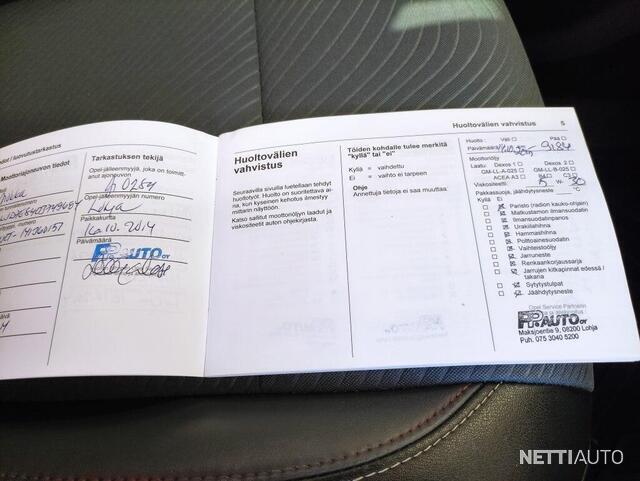 Tarkastuksen tekijä
Opel-jälleenmyyjä, joka on toimittanut ajoneuvon
A 0254
Opel-jälleenmyyjän numero
Lohja
Paikkakunta
16.10.2014
Päivämäärä
AUTO OY
Moottoriajoneuvon tiedot
Huoltovälien vahvistus
Seuraavilla sivuilla luetellaan tehdyt
huoltotyöt. Huolto on suoritettava aina,
kun kyseinen kehotus ilmestyy
mittarin näyttöön.
Katso sallitut moottoriöljyn laadut ja
viskositeetit auton ohjekirjasta.
Töiden kohdalle tulee merkitä
"kyllä" tai "ei"
Kyllä = vaihdettu
Ei = vaihto ei tarpeen
Ohje
Annettuja tietoja ei saa muuttaa.
Huoltovälien vahvistus 5
Huolto: Väli Pää
Päivämäärä
Moottoriöljy
Laatu: Dexos 1 Dexos 2
GM-LL-A-025 GM-LL-B-025
ACEA A3
Viskositeetti: W
Pakkassuoja, jäähdytysneste °C
Kyllä Ei
Paristo (radion kauko-ohjain)
Matkustamon ilmansuodatin
Ilmansuodatinpanos
Urakiilahihna
Hammashihna
Polttoainesuodatin
Vaihteistoöljy
Jarruneste
Renkaankorjaussarja
Jarrujen kitkapinnat edessä /
takana
Sytytystulpat
Jäähdytysneste
Opel Service Partnerin
AUTO OY
Maksjoentie 9, 08200 Lohja
Puh. 075 3040 5200
NETTIAUTO